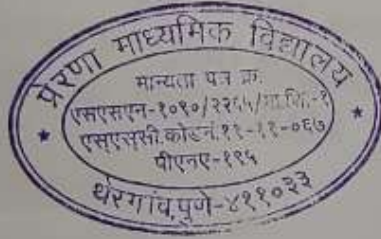 प्रेरणा माध्यमिक विद्यालय
मान्यता पत्र क्र.
एसएसएन-१०९०/२२६५/मा.शि.-१
एसएससी.कोडनं.११-११-०६७
पीएनए-१९५
थेरगांव,पुणे-४११०३३